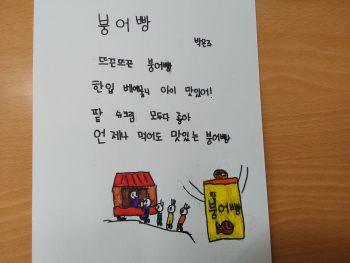 붕어빵
박은조
뜨끈뜨끈 붕어빵
한입 베에물니 아이 맛있어!
팥 슈크림 모두다 좋아
언제나 먹어도 맛있는 붕어빵
붕어빵